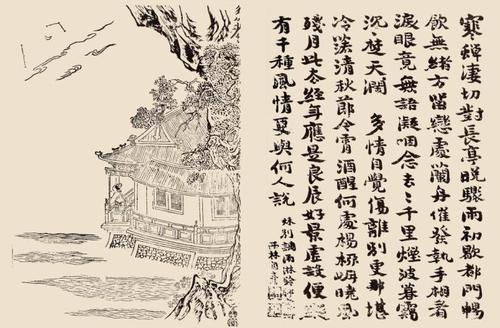 寒蟬淒切對長亭晚驟雨初歇都門暢
飲無緒方留戀處蘭舟催發執手相看
淚眼竟無語凝咽念去々千里煙波暮靄
沉々楚天闊 多情自覺傷離別更那堪
冷落清秋節今宵酒醒何處楊柳岸曉風
殘月此去經年應是良辰好景虛設便縱
有千種風情更與何人說
別調雨淋鈴